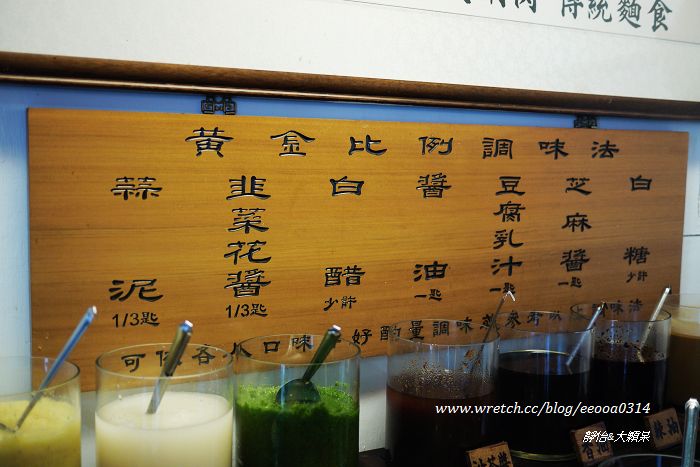 傳統麵食
黃金比例調味法
蒜泥 1/3匙
韭菜花醬 1/3匙
白醋 少許
醬油 一匙
豆腐乳汁 一匙
芝麻醬 一匙
白糖 少許
可依各人口味喜好酌量調味
www.wretch.cc/blog/eeooa0314
靜怡&大顆呆
辣油